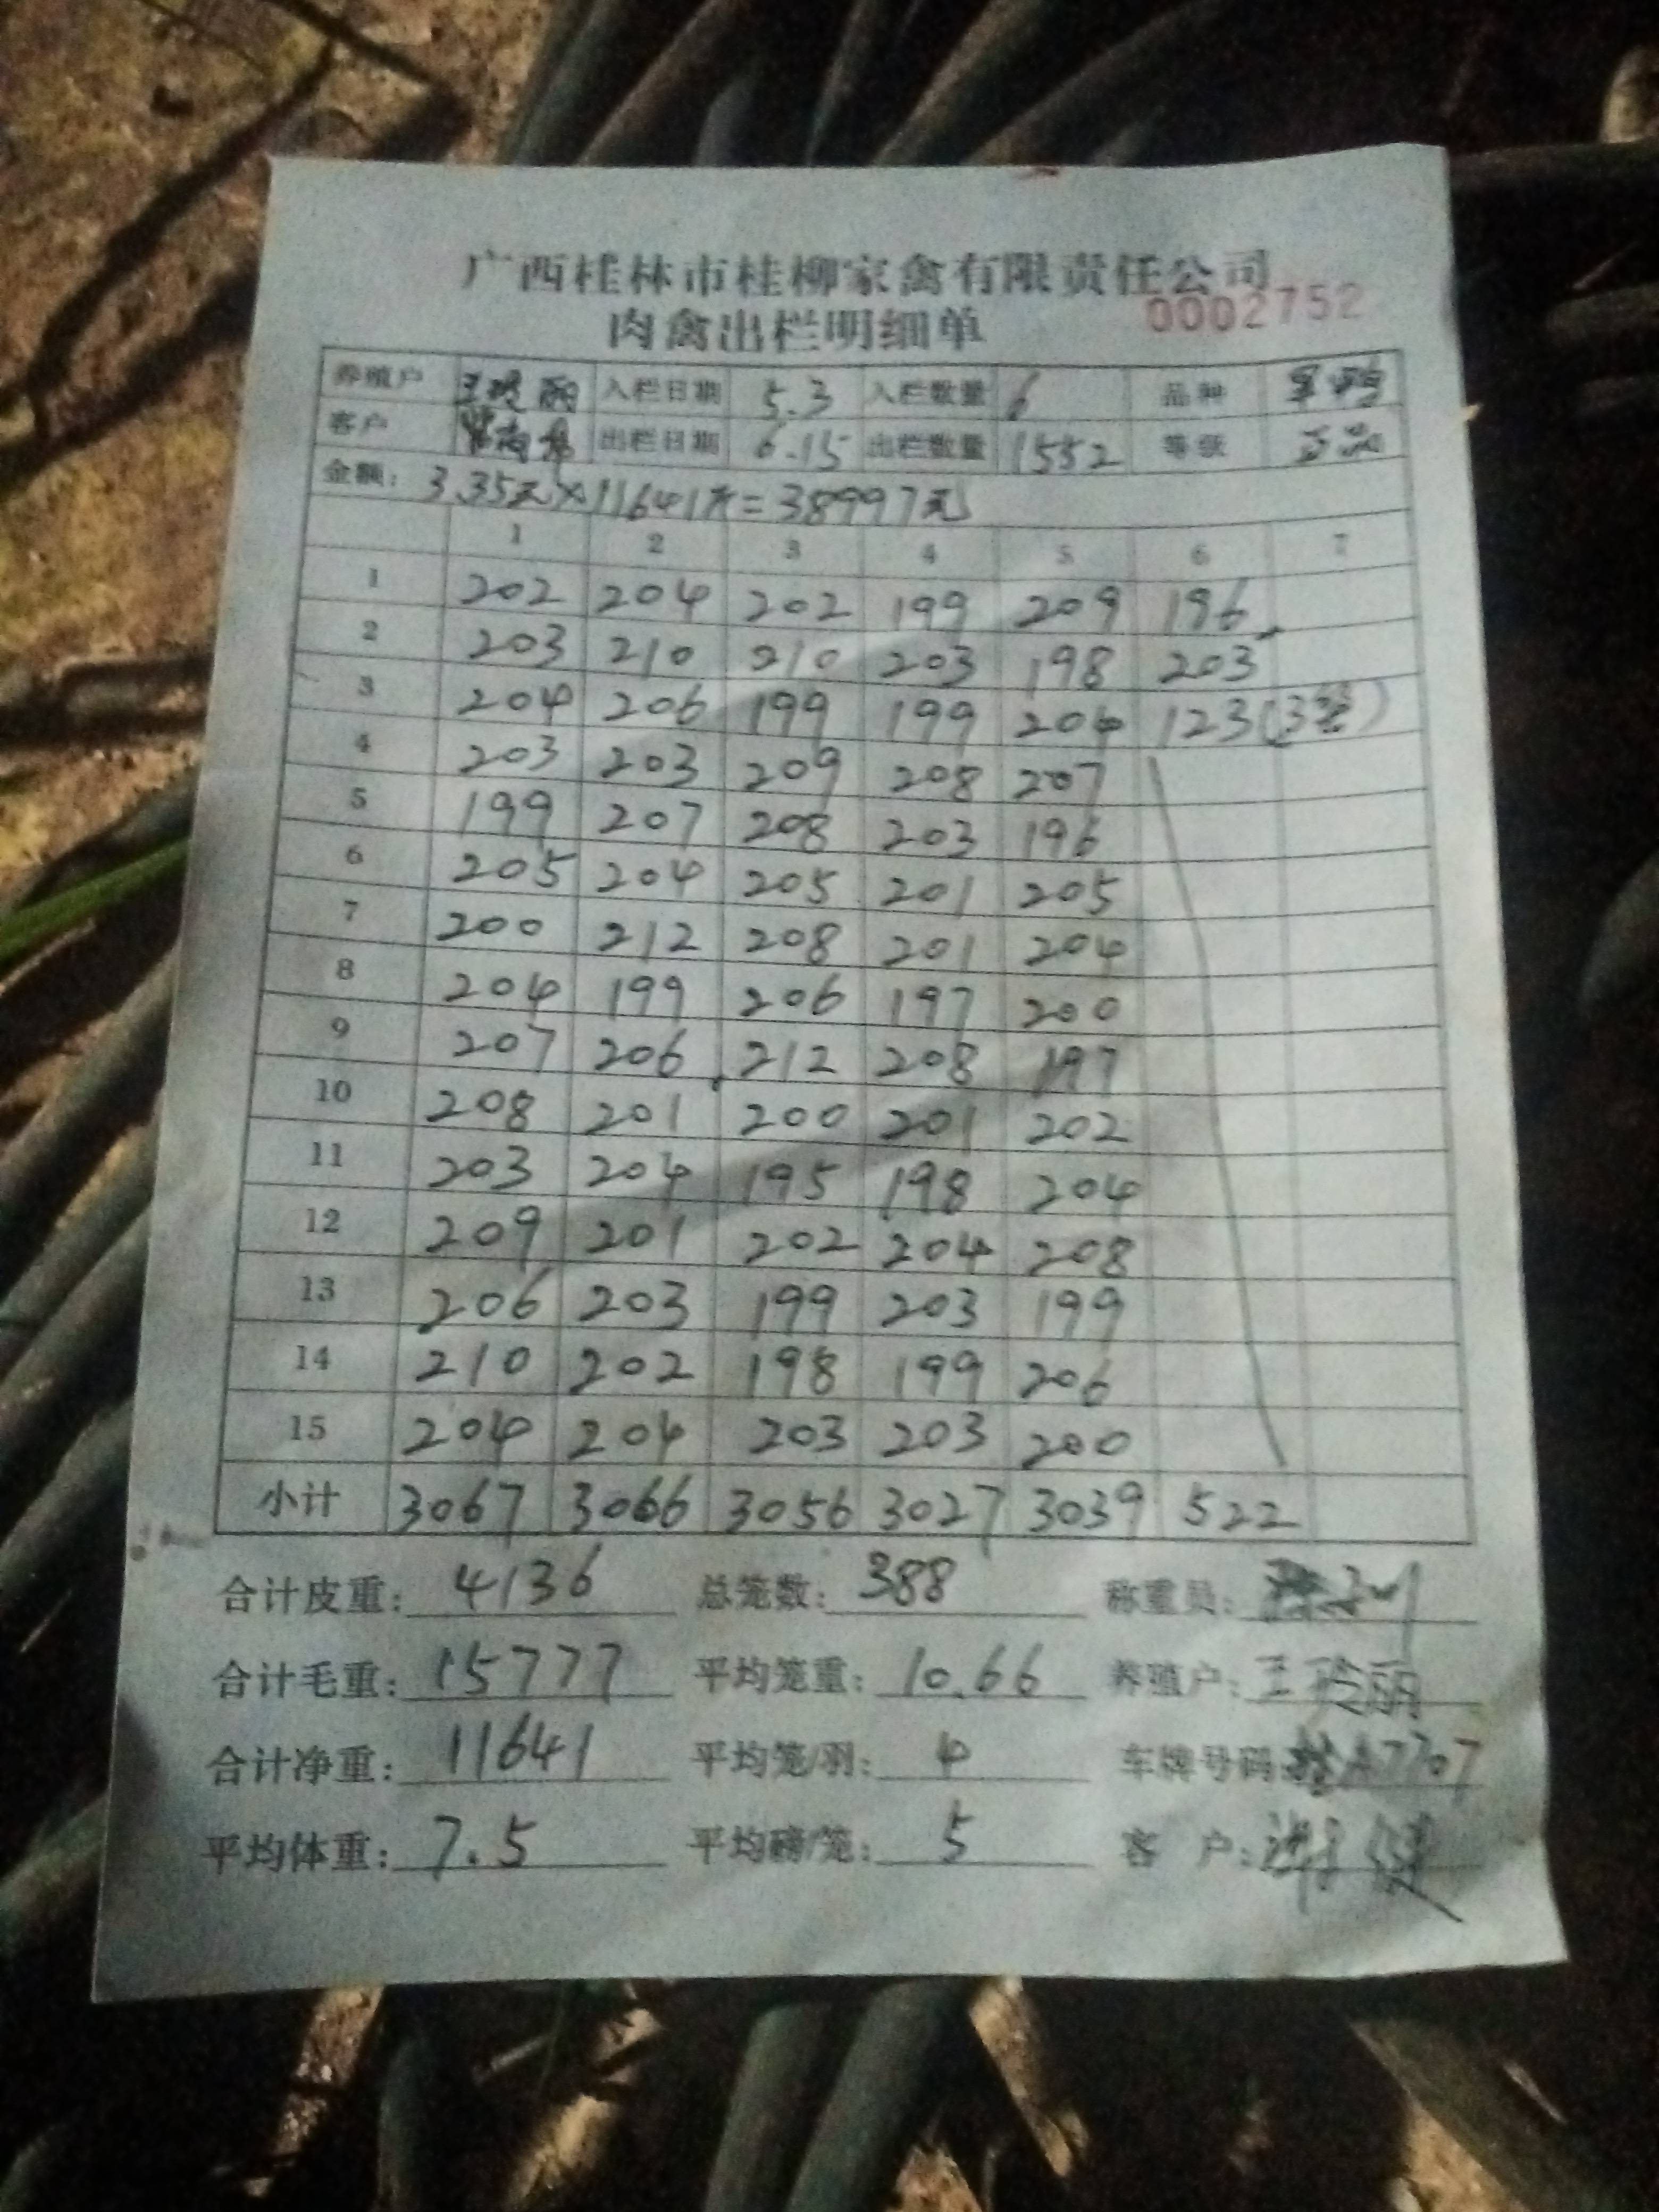 广西桂林市桂柳家禽有限责任公司
肉禽出栏明细单 0002752
养殖户 王玲丽 入栏日期 5.3 入栏数量 6 品种
客户 出栏日期 6.15 出栏数量 1552 等级 正品
金额: 3.35元×11641斤=38997元
1 2 3 4 5 6 7
1 202 204 202 199 209 196
2 203 210 210 203 198 203
3 204 206 199 199 204 123(3笼)
4 203 203 209 208 207
5 199 207 208 203 196
6 205 204 205 201 205
7 200 212 208 201 204
8 204 199 206 197 200
9 207 206 212 208 197
10 208 201 200 201 202
11 203 204 195 198 204
12 209 201 202 204 208
13 206 203 199 203 199
14 210 202 198 199 206
15 204 204 203 203 200
小计 3067 3066 3056 3027 3039 522
合计皮重: 4136 总笼数: 388 称重员:
合计毛重: 15777 平均笼重: 10.66 养殖户: 王玲丽
合计净重: 11641 平均笼/羽: 4 车牌号码: A7707
平均体重: 7.5 平均磅/笼: 5 客 户: